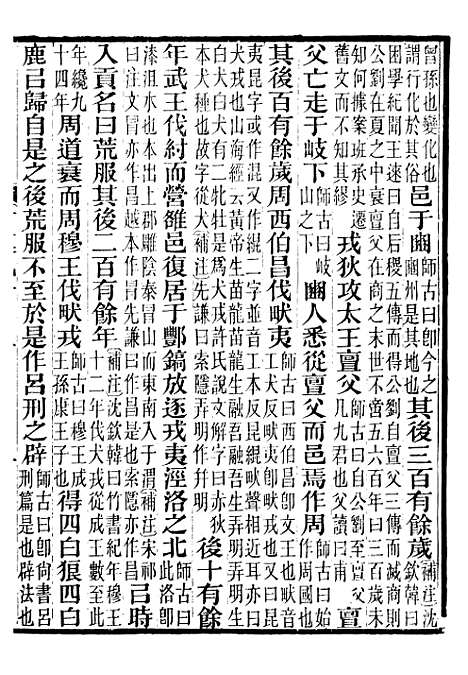 曾孫也變化也
謂行化於其俗
邑于豳
師古曰卽今之
豳州是其地也
其後三百有餘歲
補注沈
欽韓曰
困學紀聞王遬曰自后稷五傳而得公劉亶父三傳而滅商則
公劉在夏之中衰亶父在商之末世不啻五六百年曰三百歲未
知何據案班承史遷
舊文而不知其繆
戎狄攻太王亶父
師古曰自公劉至亶父
凡九君也父讀曰甫
亶
父亡走于岐下
師古曰岐
山之下
豳人悉從亶父而邑焉作周
師古曰始
作周國也
其後百有餘歲周西伯昌伐畎夷
師古曰西伯昌卽文王也畎音
工犬反畎夷卽畎戎也又曰昆
夷昆字或作混又作緄二字並音工本反昆緄畎聲相近耳亦曰
犬戎也山海經云黃帝生苗龍苗龍生融吾融吾生弄明弄明生
白犬白犬有二牝牡是爲犬戎許氏說文解字曰赤狄
本犬種也故字從犬補注宋祁曰索隱弄明作并明
後十有餘
年武王伐紂而營雒邑復居于酆鎬放逐戎夷涇洛之北
師古曰
此洛卽
漆沮水也本出上郡雕陰泰冒山而入于渭補注宋祁
曰注文冒亦作昌越本作冒先謙曰作昌是也索隱亦作昌
㠯時
入貢名曰荒服其後二百有餘年
補注沈欽韓曰竹書紀年穆王
十二年伐犬戎從成王數至此
年纔九
十四年
周道衰而周穆王伐畎戎
師古曰穆王成
王孫康王子也
得四白狼四白
鹿㠯歸自是之後荒服不至於是作呂刑之辟
師古曰卽尚書呂
刑篇是也辟法也